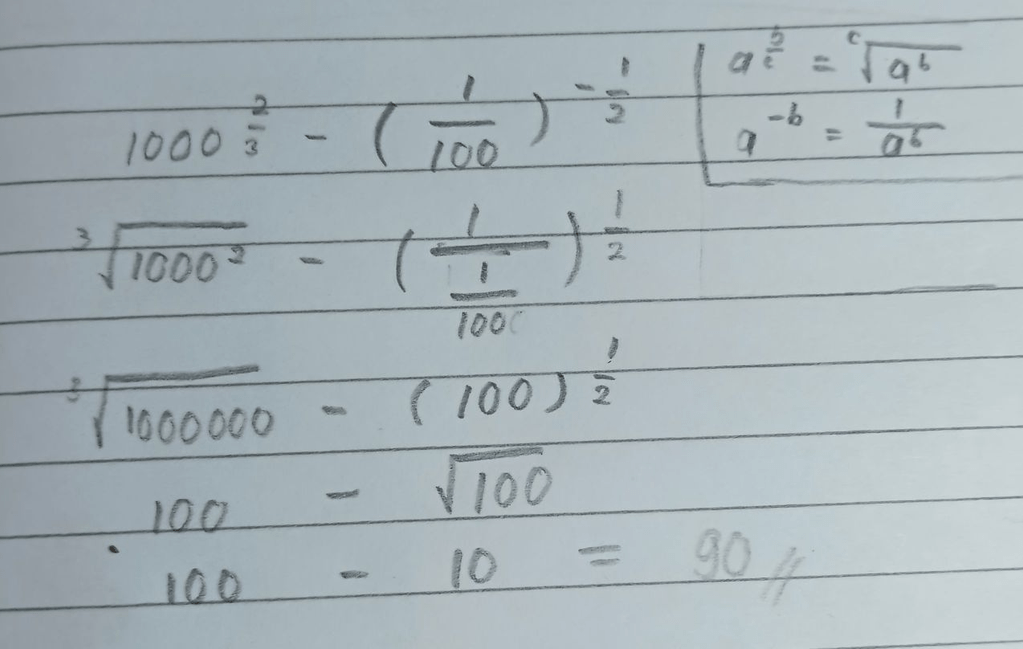 1000^{2/3} - (1/100)^{-1/2}
a^{b/c} = ᶜ√(a^b)
a^{-b} = 1/a^b
³√(1000²) - (1/(1/100))^{1/2}
³√1000000 - (100)^{1/2}
100 - √100
100 - 10 = 90 //